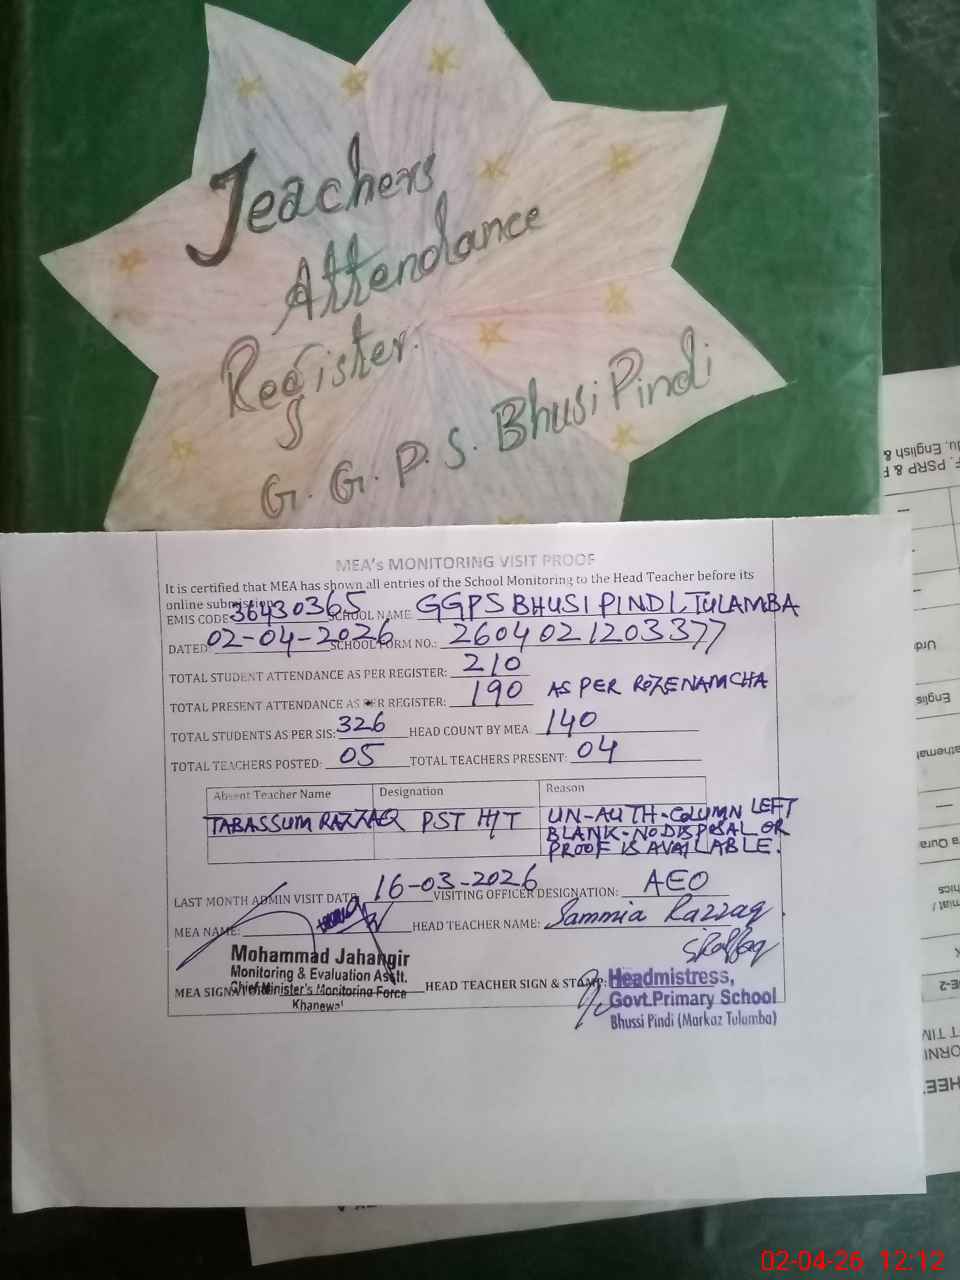 Teachers
Attendance
Register
G.G.P.S. Bhusi Pindi
MEA's MONITORING VISIT PROOF
It is certified that MEA has shown all entries of the School Monitoring to the Head Teacher before its
online submission.
EMIS CODE 36430365 SCHOOL NAME GGPS BHUSI PINDI, TULAMBA
DATED: 02-04-2026 SCHOOL FORM NO.: 2604021203377
TOTAL STUDENT ATTENDANCE AS PER REGISTER: 210
TOTAL PRESENT ATTENDANCE AS PER REGISTER: 190 AS PER ROZENAMCHA
TOTAL STUDENTS AS PER SIS: 326 HEAD COUNT BY MEA: 140
TOTAL TEACHERS POSTED: 05 TOTAL TEACHERS PRESENT: 04
Absent Teacher Name Designation Reason
TABASSUM RAZZAQ PST H/T UN-AUTH-COLUMN LEFT
BLANK-NO DISPOSAL OR
PROOF IS AVAILABLE.
LAST MONTH ADMIN VISIT DATE: 16-03-2026 VISITING OFFICER DESIGNATION: AEO
MEA NAME: HEAD TEACHER NAME: Sammia Razzaq
Mohammad Jahangir
Monitoring & Evaluation Asstt.
Chief Minister's Monitoring Force
Khanewal
MEA SIGN HEAD TEACHER SIGN & STAMP:
Headmistress,
Govt.Primary School
Bhussi Pindi (Markaz Tulamba)
02-04-26 12:12